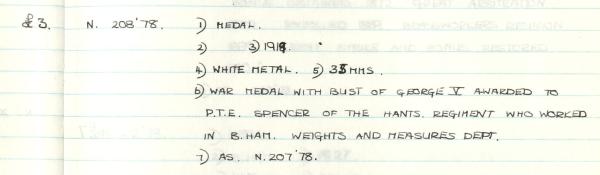 £3. N. 208'78. 1) MEDAL.
2) 3) 1918 .
4) WHITE METAL. 5) 35 MMS.
6) WAR MEDAL WITH BUST OF GEORGE V AWARDED TO
P.T.E. SPENCER OF THE HANTS. REGIMENT WHO WORKED
IN B.HAM. WEIGHTS AND MEASURES DEPT.
7) AS. N.207'78.